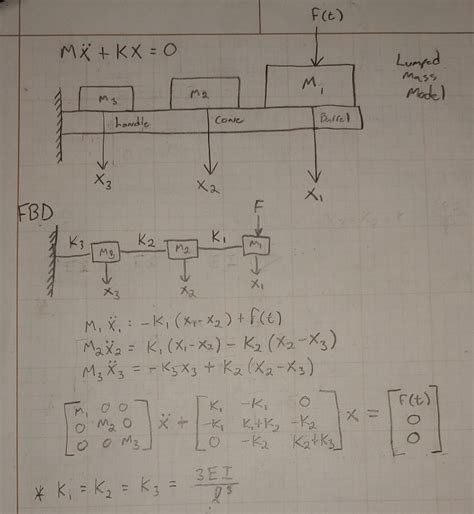 F(t)
MẌ + KX = 0
Lumped
Mass
Model
M₃ M₂ M₁
handle Cone Barrel
X₃ X₂ X₁
FBD
F
K₃ M₃ K₂ M₂ K₁ M₁
X₃ X₂ X₁
M₁Ẍ₁ = -K₁(X₁-X₂) + f(t)
M₂Ẍ₂ = K₁(X₁-X₂) - K₂(X₂-X₃)
M₃Ẍ₃ = -K₃X₃ + K₂(X₂-X₃)
[M₁ 0 0; 0 M₂ 0; 0 0 M₃] Ẍ + [K₁ -K₁ 0; -K₁ K₁+K₂ -K₂; 0 -K₂ K₂+K₃] X, = [F(t); 0; 0]
* K₁ = K₂ = K₃ = 3EI/l³